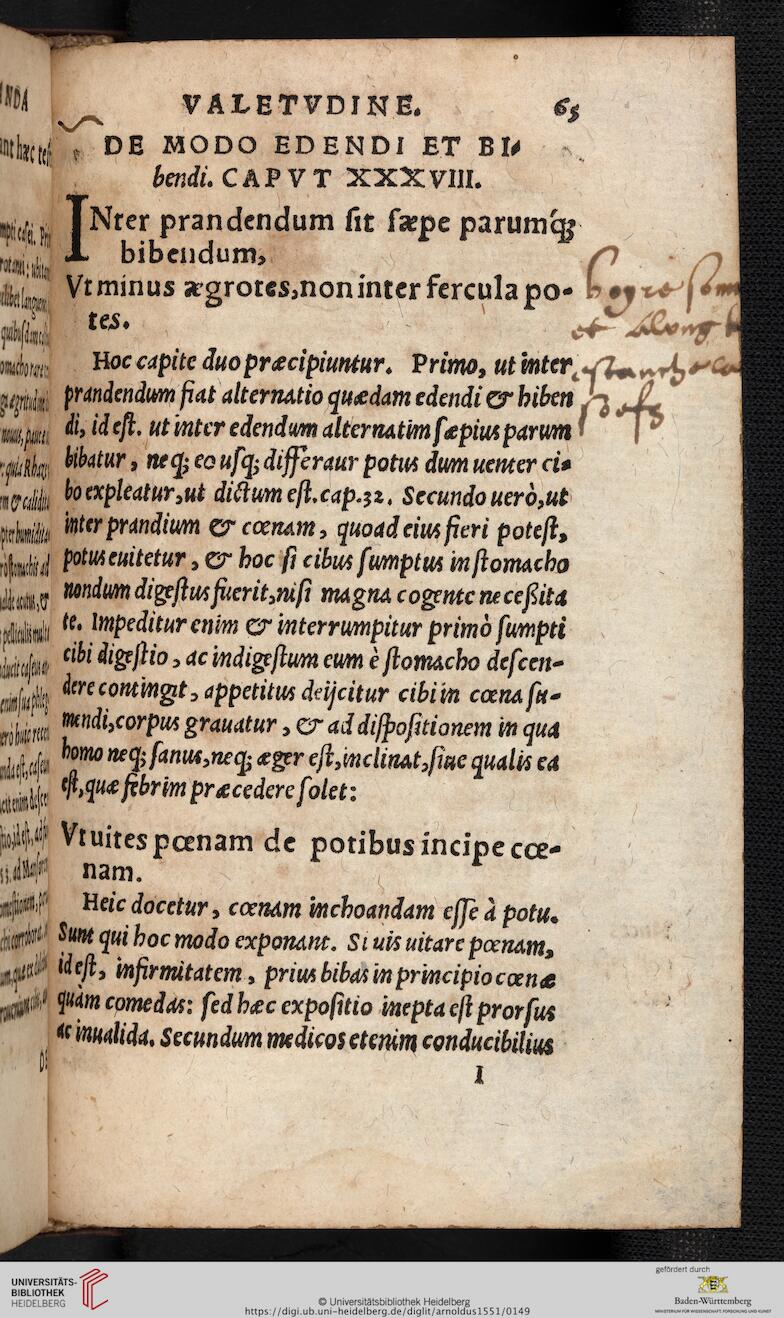 VALETVDINE. 65
DE MODO EDENDI ET BI-
bendi. CAPVT XXXVIII.
INter prandendum sit sæpe parumq́;
bibendum,
Vt minus ægrotes, non inter fercula po-
tes.
Hoc capite duo præcipiuntur. Primo, ut inter
prandendum fiat alternatio quædam edendi & biben
di, id est. ut inter edendum alternatim sæpius parum
bibatur, neq; eo usq; differaur potus dum uenter ci-
bo expleatur, ut dictum est. cap. 32. Secundo uerò, ut
inter prandium & cœnam, quoad eius fieri potest,
potus euitetur, & hoc si cibus sumptus in stomacho
nondum digestus fuerit, nisi magna cogente necessita
te. Impeditur enim & interrumpitur primò sumpti
cibi digestio, ac indigestum eum è stomacho descen-
dere contingit, appetitus deijcitur cibi in cœna su-
mendi, corpus grauatur, & ad dispositionem in qua
homo neq; sanus, neq; æger est, inclinat, siue qualis ea
est, quæ febrim præcedere solet:
Vt uites pœnam de potibus incipe cœ-
nam.
Heic docetur, cœnam inchoandam esse à potu.
Sunt qui hoc modo exponant. Si uis uitare pœnam,
id est, infirmitatem, prius bibas in principio cœnæ
quàm comedas: sed hæc expositio inepta est prorsus
ac inualida. Secundum medicos etenim conducibilius
I
UNIVERSITÄTS-
BIBLIOTHEK
HEIDELBERG
© Universitätsbibliothek Heidelberg
https://digi.ub.uni-heidelberg.de/diglit/arnoldus1551/0149
gefördert durch
Baden-Württemberg
MINISTERIUM FÜR WISSENSCHAFT, FORSCHUNG UND KUNST